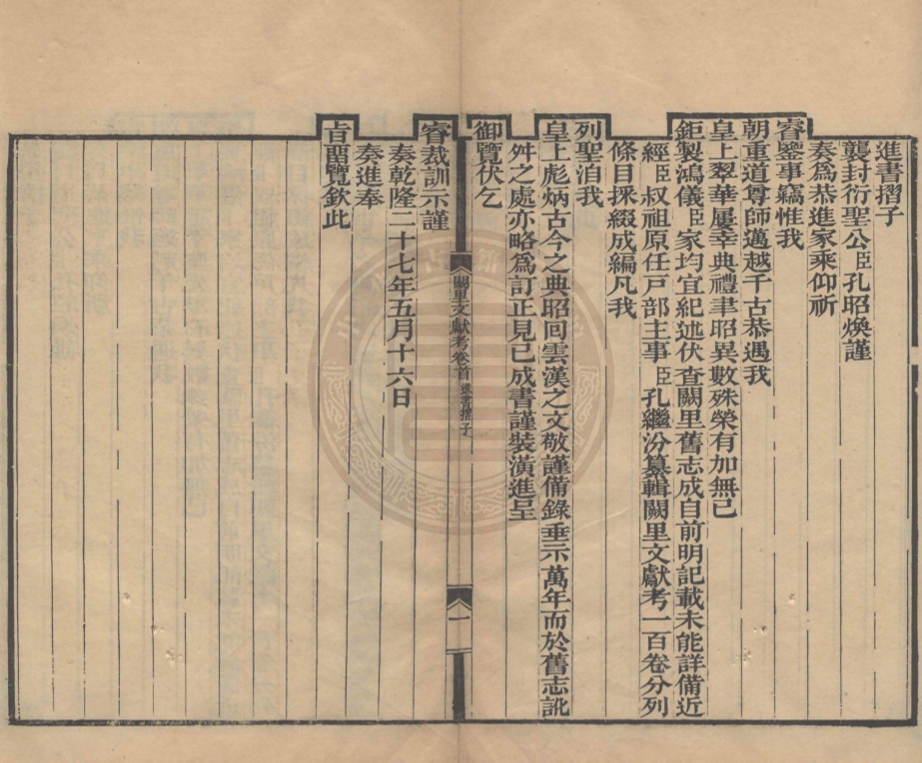 進書摺子
襲封衍聖公臣孔昭煥謹
奏爲恭進家乘仰祈
睿鑒事竊惟我
朝重道尊師邁越千古恭遇我
皇上翠華屢幸典禮聿昭異數殊榮有加無已
鉅製鴻儀臣家均宜紀述伏查闕里舊志成自前明記載未能詳備近
經臣叔祖原任戸部主事臣孔繼汾纂輯闕里文獻考一百卷分列
條目採綴成編凡我
列聖洎我
皇上彪炳古今之典昭回雲漢之文敬謹備錄垂示萬年而於舊志訛
舛之處亦略爲訂正見已成書謹裝潢進呈
御覽伏乞
闕里文獻考卷首 進書摺子 一
睿裁訓示謹
奏乾隆二十七年五月十六日
奏進奉
旨畱覽欽此